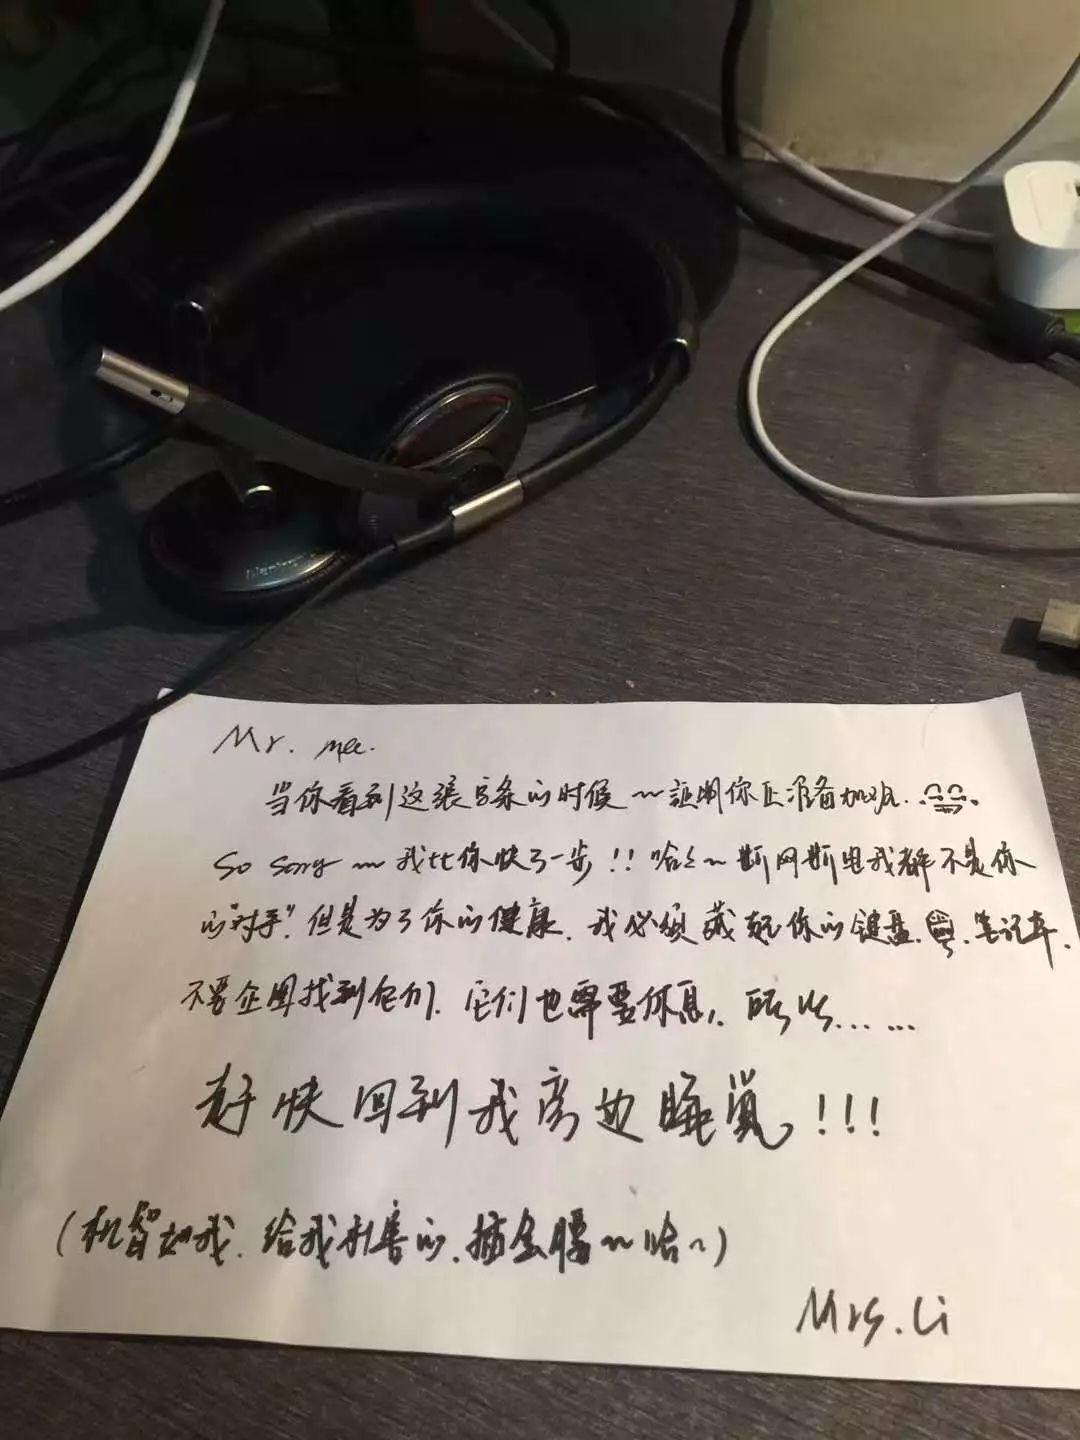 Mr. mee.
当你看到这张字条的时候~証明你正准备加班.
So sorry ~ 我比你快了一步!! 哈~ 我都不是你
的"对手", 但是为了你的健康, 我必须藏起你的键盘, 笔记本,
不要企图找到它们, 它们也需要休息, 所以……
赶快回到我旁边睡觉!!!
(机智如我, 给我利害的, 插会腰~哈~)
Mrs. Li